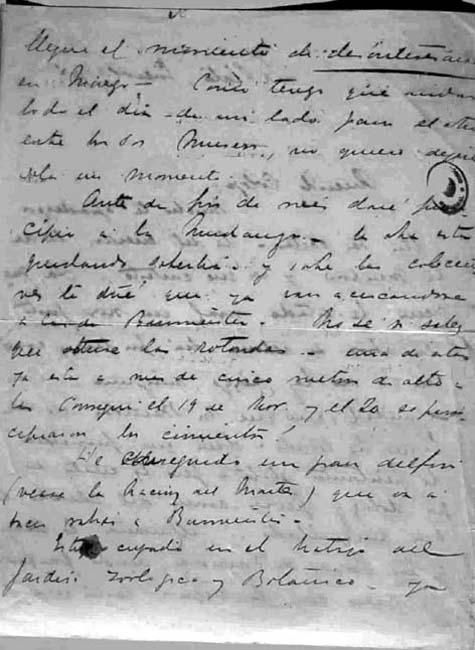 llegue el momento de desinteresarse
en Mayo - Como tengo que andar
todo el dia de un lado para el otro
entre los dos Museos, no quiero dejar
sola un momento.
Antes de fin de mes daré prin
cipio a la Mudanza - la obra esta
quedando soberbia - y sobre las coleccio
nes te diré que ya van acercandose
a las de Burmeister - No sé si sabes
que obtuve las rotondas - una de ellas
ya esta a mas de cinco metros de alto -
las Consegui el 19 de Nov. y el 20 se prin
cipiaron los cimientos!
He conseguido un gran delfin
(vease la Nacion del Martes) que va a
hacer rabiar a Burmeister -
Estoy ocupado en el trabajo del
Jardin Zoologico y Botánico - ya